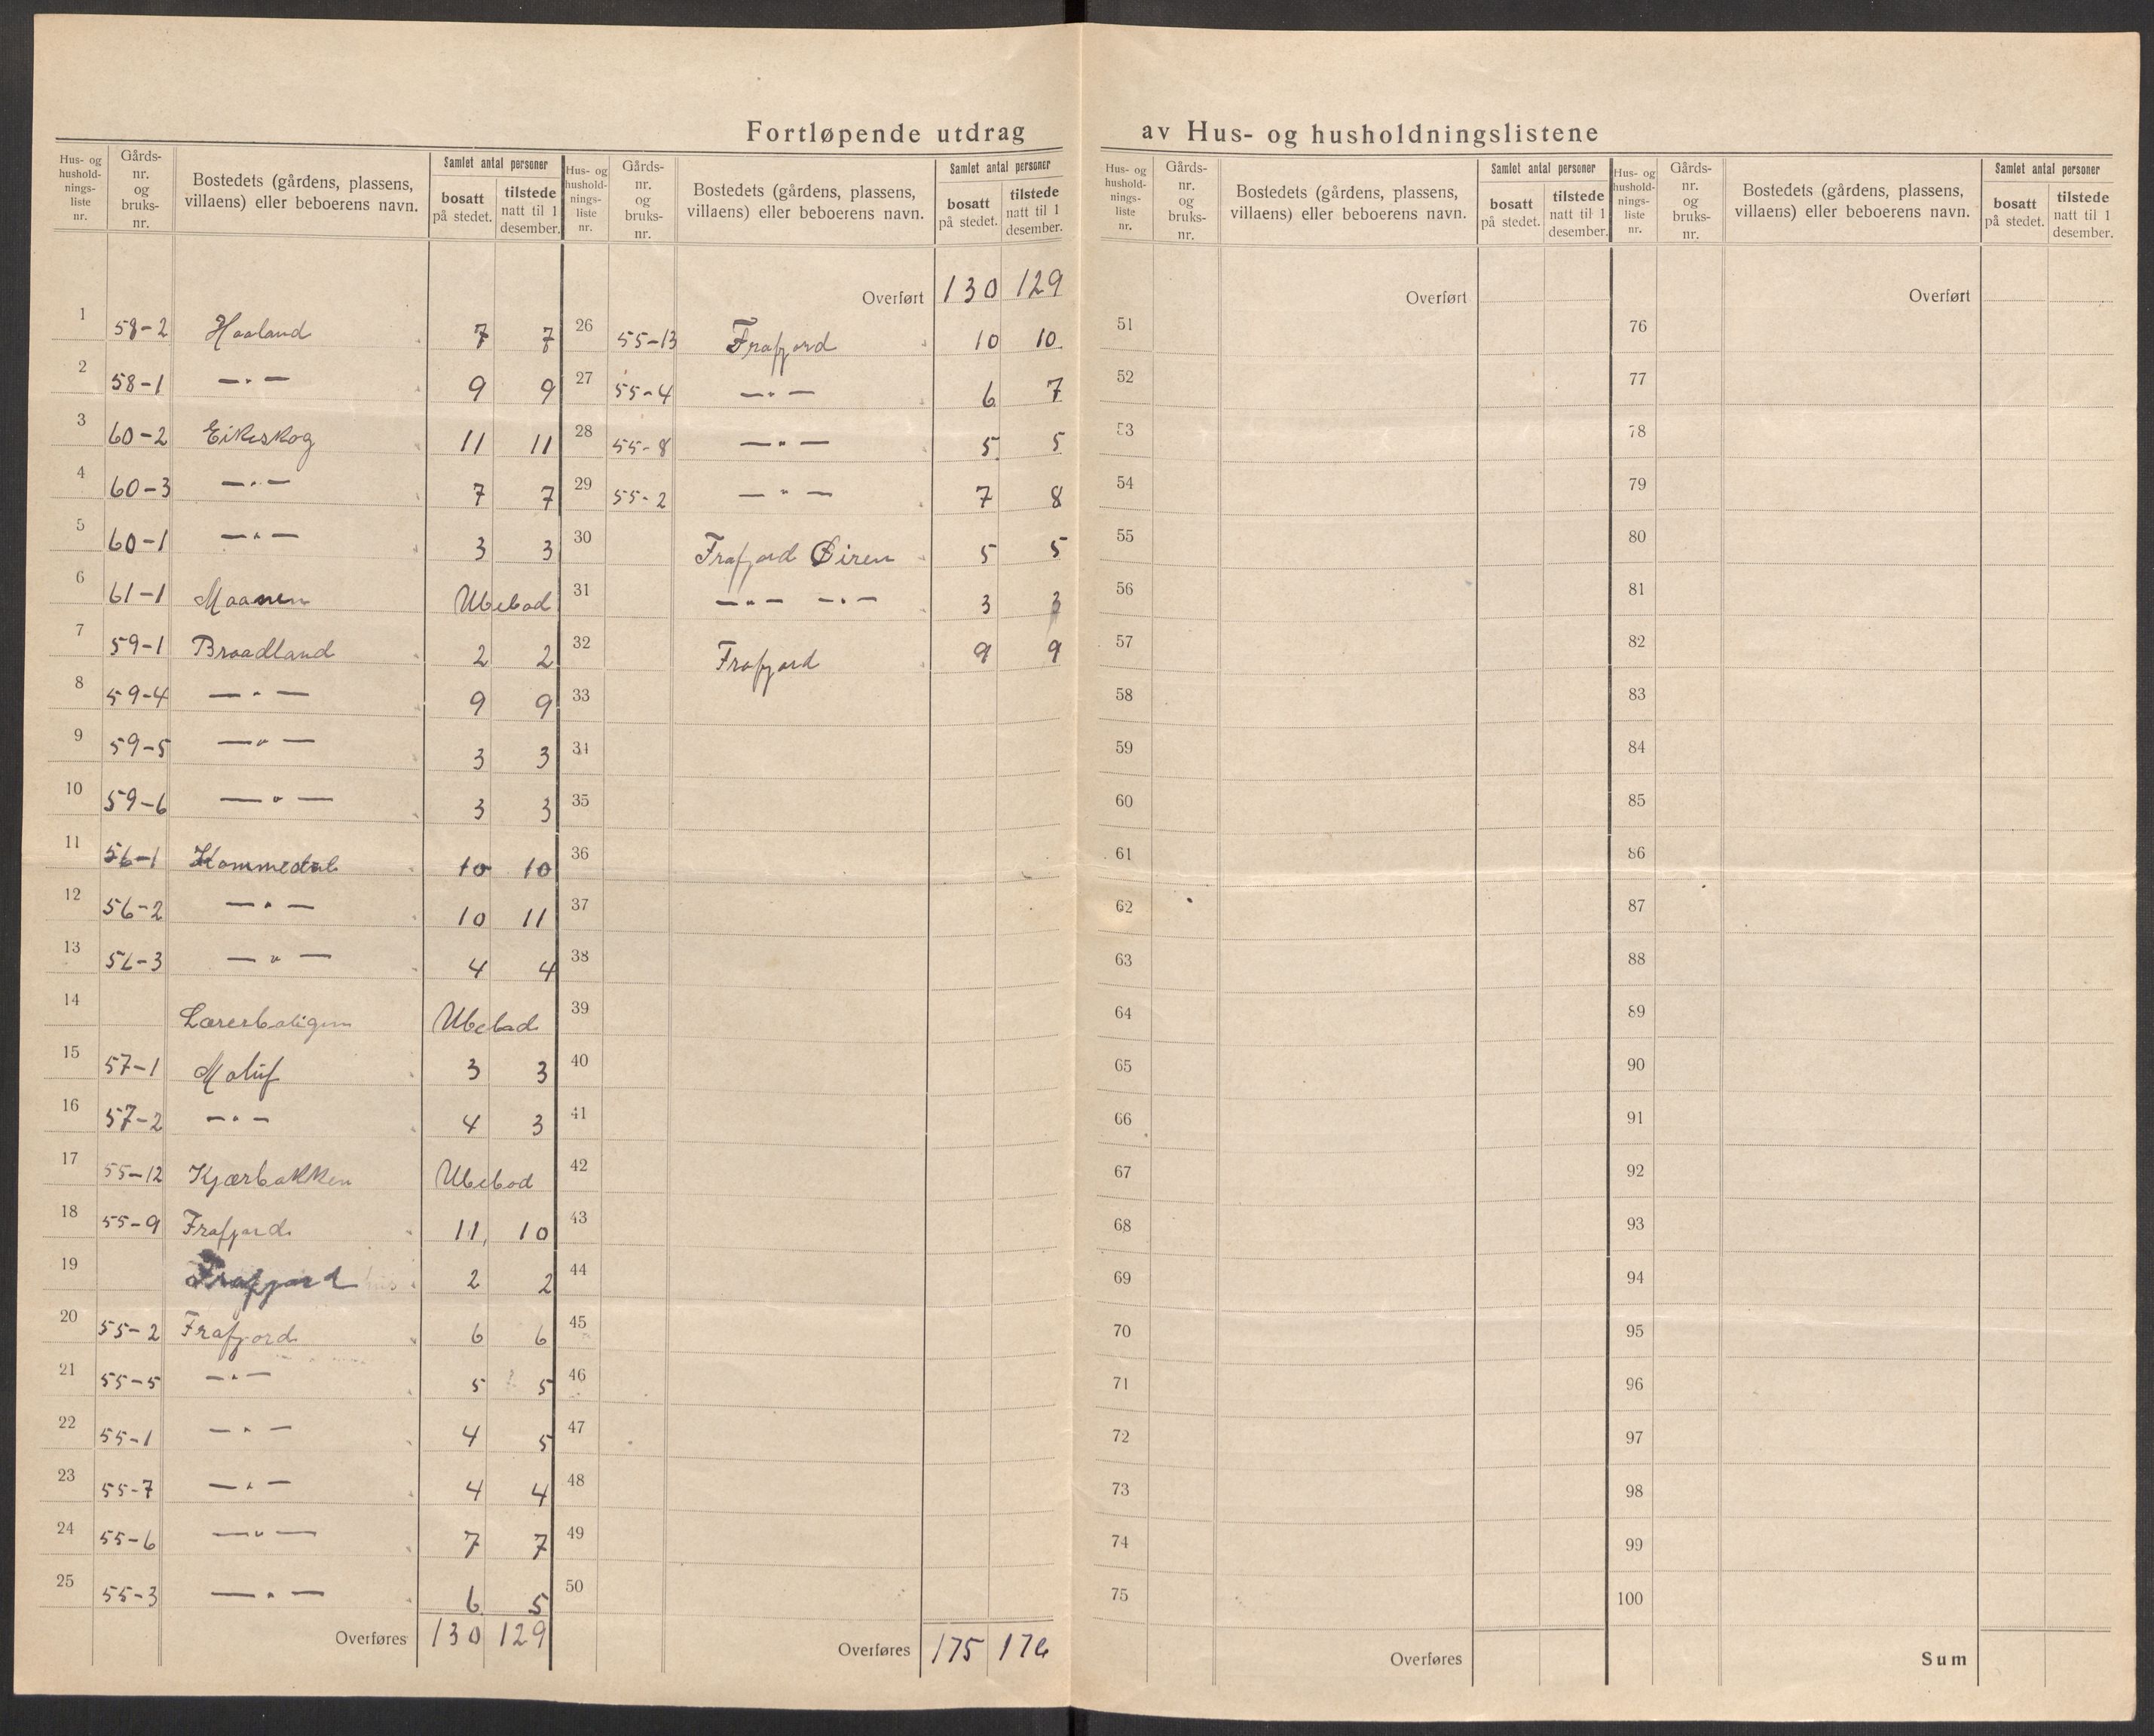 Fortløpende utdrag av Hus- og husholdningslistene
Hus- og hushold-nings-liste nr. Gårds-nr. og bruks-nr. Bostedets (gårdens, plassens, villaens) eller beboerens navn. Samlet antal personer bosatt på stedet. tilstede natt til 1 desember.
1 58-2 Haaland 7 7
2 58-1 —"— 9 9
3 60-2 Eikeskog 11 11
4 60-3 —"— 7 7
5 60-1 —"— 3 3
6 61-1 Maanen Ubebod
7 59-1 Braadland 2 2
8 59-4 —"— 9 9
9 59-5 —"— 3 3
10 59-6 —"— 3 3
11 56-1 Kommedal 10 10
12 56-2 —"— 10 11
13 56-3 —"— 4 4
14 Lærerboligen Ubebod
15 57-1 Molúf 3 3
16 57-2 —"— 4 3
17 55-12 Kjærbakken Ubebod
18 55-9 Frafjord 11 10
19 Frafjord 2 2
20 55-2 Frafjord 6 6
21 55-5 —"— 5 5
22 55-1 —"— 4 5
23 55-7 —"— 4 4
24 55-6 —"— 7 7
25 55-3 —"— 6 5
Overføres 130 129
Hus- og hushold-nings-liste nr. Gårds-nr. og bruks-nr. Bostedets (gårdens, plassens, villaens) eller beboerens navn. Samlet antal personer bosatt på stedet. tilstede natt til 1 desember.
Overført 130 129
26 55-13 Frafjord 10 10
27 55-4 —"— 6 7
28 55-8 —"— 5 5
29 55-2 —"— 7 8
30 Frafjord Øiren 5 5
31 —"— —"— 3 3
32 Frafjord 9 9
33
34
35
36
37
38
39
40
41
42
43
44
45
46
47
48
49
50
Overføres 175 176
Hus- og hushold-nings-liste nr. Gårds-nr. og bruks-nr. Bostedets (gårdens, plassens, villaens) eller beboerens navn. Samlet antal personer bosatt på stedet. tilstede natt til 1 desember.
Overført
51
52
53
54
55
56
57
58
59
60
61
62
63
64
65
66
67
68
69
70
71
72
73
74
75
Overføres
Hus- og hushold-nings-liste nr. Gårds-nr. og bruks-nr. Bostedets (gårdens, plassens, villaens) eller beboerens navn. Samlet antal personer bosatt på stedet. tilstede natt til 1 desember.
Overført
76
77
78
79
80
81
82
83
84
85
86
87
88
89
90
91
92
93
94
95
96
97
98
99
100
Sum